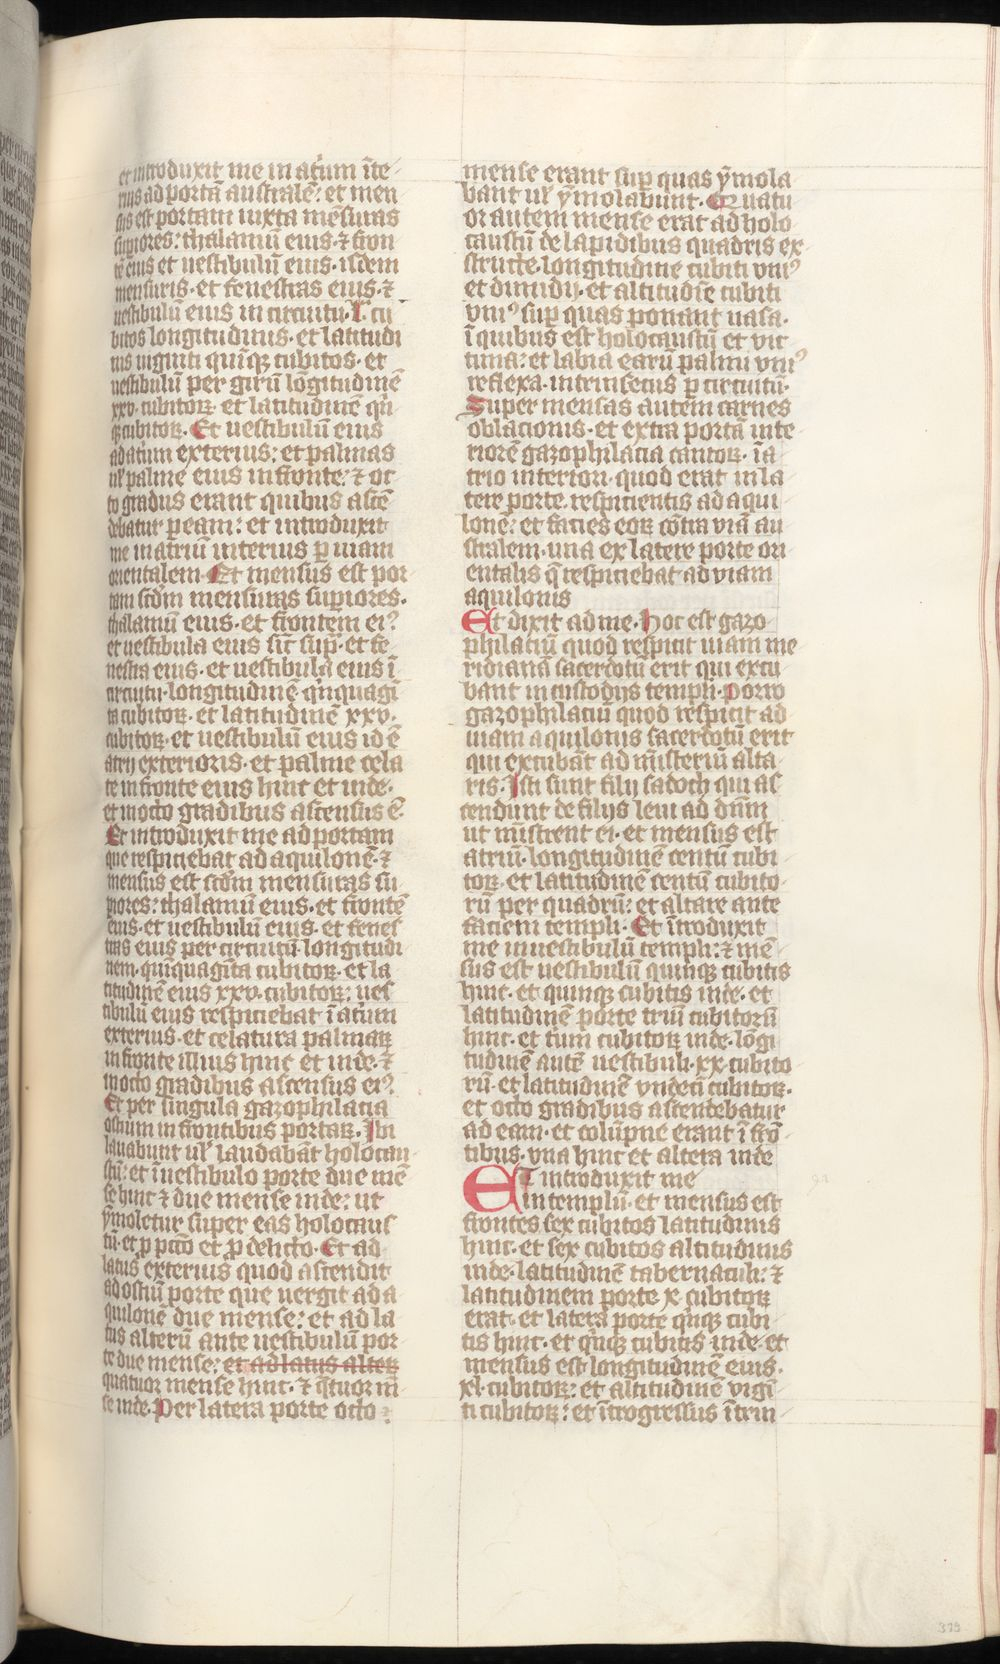 et introduxit me in atrium īte
rius ad portā australē: et men
sus est portam iuxta mēsuras
supiores: thalamū eius ⁊ fron
tē eius et uestibulū eius isdem
mensuris et fenestras eius ⁊
uestibulū eius in circuitu L cu
bitos longitudinis et latitudi
nis uiginti quinꝙ cubitos et
uestibulū per girū lōgitudinē
xxv cubitoꝝ et latitudinē qͥn
ꝙ cubitoꝝ Et uestibulū eius
ad atrium exterius: et palmas
uł palme eius in fronte: ⁊ oc
to gradus erant quibus ascē
debatur ꝑ eam: et introduxit
me in atriū interius ꝑ uiam
orientalem Et mensus est por
tam scdm mensuras supiores
thalamū eius et frontem eiꝰ
et uestibula eius sic̄ supͣ et fe
nestra eius et uestibula eius ī
circuitu longitudinē qͥnquagī
ta cubitoꝝ et latitudinē xxv
cubitoꝝ et uestibulū eius id ē
atrij exterioris et palme cela
te in fronte eius hinc et inde
et in octo gradibus ascensus eꝰ
Et introduxit me ad portam
que respiciebat ad aquilonē ⁊
mensus est scdm mensuras su
piores: thalamū eius et frontē
eius et uestibulū eius et fenes
tras eius per circuitū longitudi
nem quinquagīta cubitoꝝ et la
titudinē eius xxv cubitoꝝ: ues
tibulū eius respiciebat ī atrium
exterius et celatura palmaꝝ
in fronte illius hinc et inde ⁊
in octo gradibus ascensus eiꝰ
Et per singula gazophilacia
ostium in frontibus portaꝝ Ibi
lauabunt uł laudabāt holocau
stū: et ī uestibulo porte due mē
se hinc ⁊ due mense inde: ut
ymoletur super eas holocaus
tū et ꝓ pctō et ꝓ delicto Et ad
latus exterius quod ascendit
ad ostiū porte que uergit ad a
quilonē due mense: et ad la
tus alterū ante uestibulū por
te due mense: et ad latus alteꝝ
quatuor mense hinc ⁊ qͣtuor m̄
se inde Per latera porte octo
mense erant sup quas ymola
bant uł ymolabunt Quatu
or autem mense erāt ad holo
caustū de lapidibus quadris ex
structe longitudine cubiti vniꝰ
et dimidij et altitudīe cubiti
vniꝰ sup quas ponant uasa
ī quibus est holocaustū et vic
tima: et labia earū palmi vniꝰ
reflexa intrinsecus ꝑ circuitū
Super mensas autem carnes
oblacionis et extra portā inte
riorē gazophilacia cantoꝝ ī a
trio interiori quod erat in la
tere porte respicientis ad aqui
lonē: et facies eoꝝ cōtra viā au
stralem una ex latere porte ori
entalis q̄ respiciebat ad viam
aquilonis
Et dixit ad me hoc est gazo
philaciū quod respicit uiam me
ridianā sacerdotū erit qui excu
bant in custodijs templi Porro
gazophilaciū quod respicit ad
uiam aquilonis sacerdotū erit
qui excubāt ad misteriū alta
ris Isti sunt filij sadoch qui as
cendunt de filijs leui ad dn̄m
ut mīstrent ei et mensus est
atriū longitudinē centū cubi
toꝝ et latitudinē centū cubito
rū per quadrū: et altare ante
faciem templi Et ītroduxit
me in uestibulū templi: ⁊ mē
sus est uestibulū quinꝙ cubitis
hinc et quinꝙ cubitis inde et
latitudinē porte triū cubitorū
hinc et trium cubitoꝝ inde lōgi
tudinē autē uestibuli xx cubito
rū et latitudinē vndeci cubitoꝝ
et octo gradibus ascendebatur
ad eam et colūpne erant ī frō
tibus vna hinc et altera inde
ET introduxit me
in templū et mensus est
frontes sex cubitos latitudinis
hinc et sex cubitos altitudinis
inde latitudinē tabernaculi: ⁊
latitudinem porte x cubitoꝝ
erat et latera porte qͥnꝙ cubi
tis hinc et qͥnꝙ cubitis inde et
mensus est longitudinē eius
xl cubitoꝝ: et altitudinē vigī
ti cubitoꝝ: et ītrogressus ītrin
319